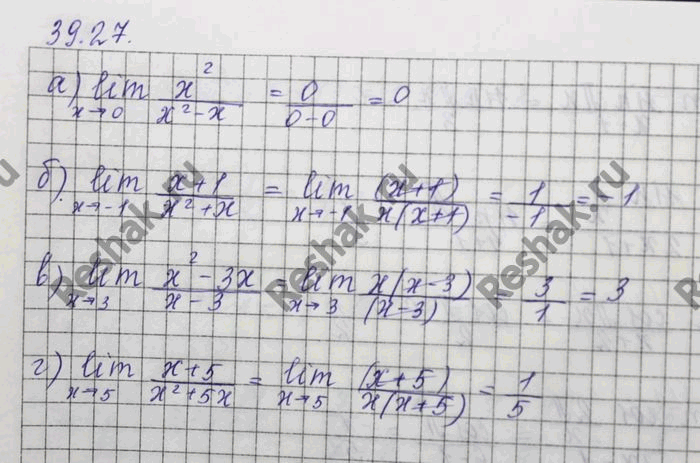 39.27.
а) lim x→0 x²/(x²-x) = 0/(0-0) = 0
б). lim x→-1 (x+1)/(x²+x) = lim x→-1 (x+1)/(x(x+1)) = 1/-1 = -1
в) lim x→3 (x²-3x)/(x-3) = lim x→3 x(x-3)/(x-3) = 3/1 = 3
г) lim x→5 (x+5)/(x²+5x) = lim x→5 (x+5)/(x(x+5)) = 1/5
Reshak.ru
Reshak.ru
Reshak.ru